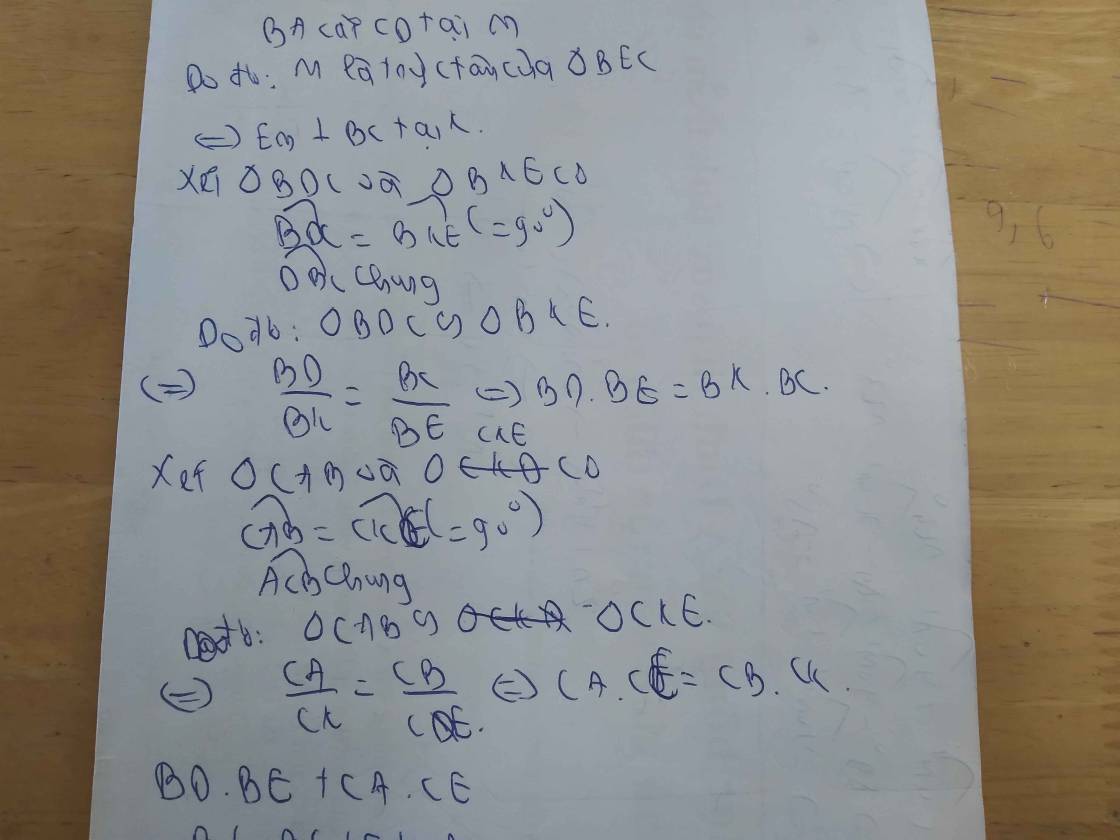 BA cắt CD tại M
Do đó: M là trực tâm của ΔBEC
<=> EM ⊥ BC tại K.
Xét ΔBDC và ΔBKE CÓ
BDC = BKE (=90°)
DBC chung
Do đó: ΔBDC ∽ ΔBKE.
(=) BD/BK = BC/BE <=> BD.BE = BK.BC.
Xét ΔCAB và ΔCKE CÓ
CAB = CKE (=90°)
ACB chung
Do đó: ΔCAB ∽ ΔCKE.
<=> CA/CK = CB/CE <=> CA.CE = CB.CK.
BD.BE + CA.CE
9,6